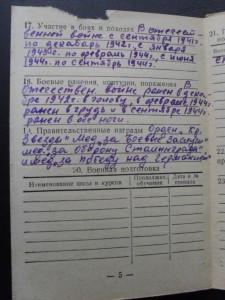 17. Участие в боях и походах В отечест-
венной войне с сентября 1941г.
по декабрь 1942г., с января
1943г. по февраль 1944г., с июня
1944г. по сентябрь 1944г.
18. Боевые ранения, контузии, поражения В
Отечествен. войне ранен в декаб-
ре 1942г. в голову, в феврале 1944г.
ранен в грудь и в сентябре 1944г.
ранен в обе ноги.
19. Правительственные награды Орден „Кр.
Звезды" Мед. „за боевые заслуги"
мед. „за оборону Сталинграда"
и мед. „за победу над Германией"
20. Военная подготовка
Наименование школы и курсов
Продолжит. обучения
Дата и №
— 5 —